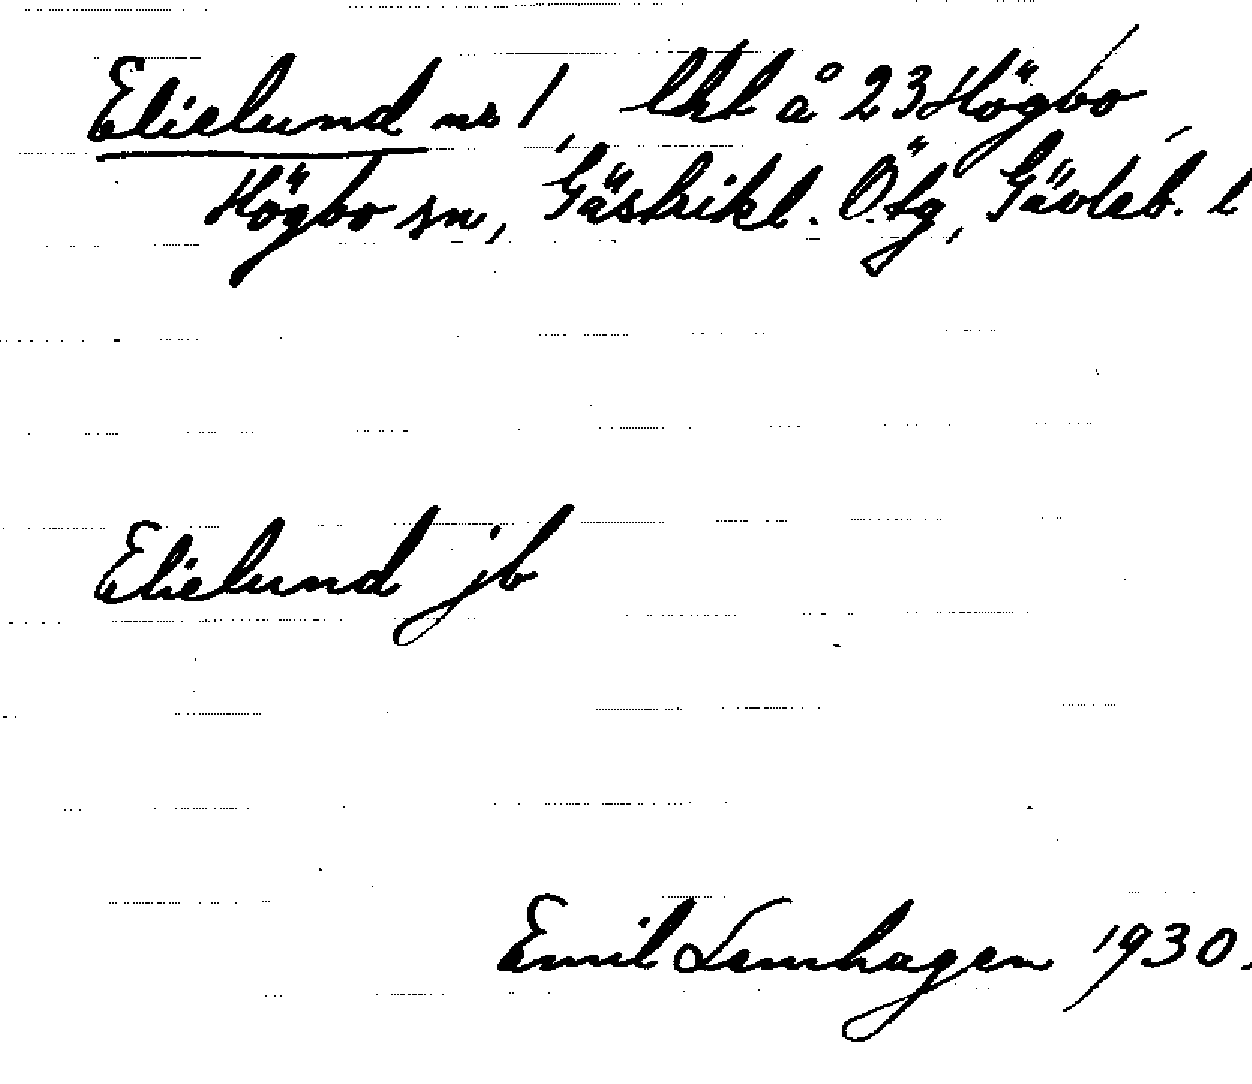 Elielund nr 1, lht å 23 Högbo,
Högbo sn, Gästrikl. Ötg, Gävleb. l
Elielund jb
Emil Lemhagen 1930.